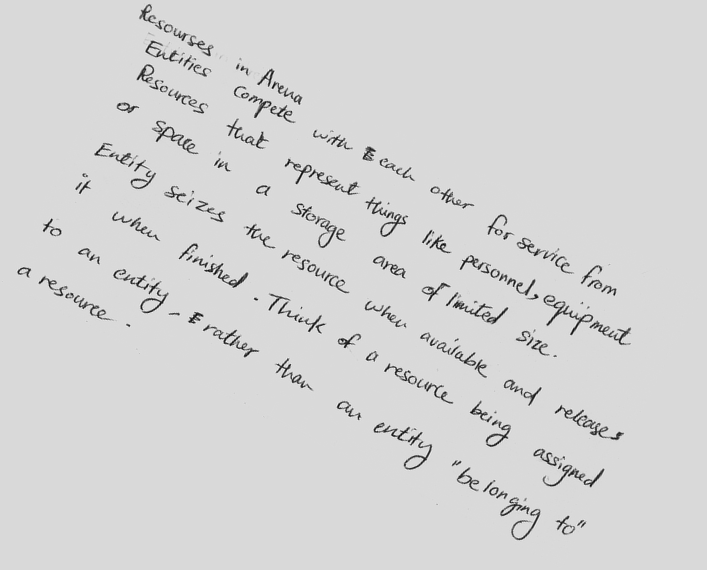 Resourses in Arena
Entities compete with each other for service from
Resources that represent things like personnel, equipment
or space in a storage area of limited size.
Entity seizes the resource when available and releases
it when finished. Think of a resource being assigned
to an entity - rather than an entity "belonging to"
a resource.